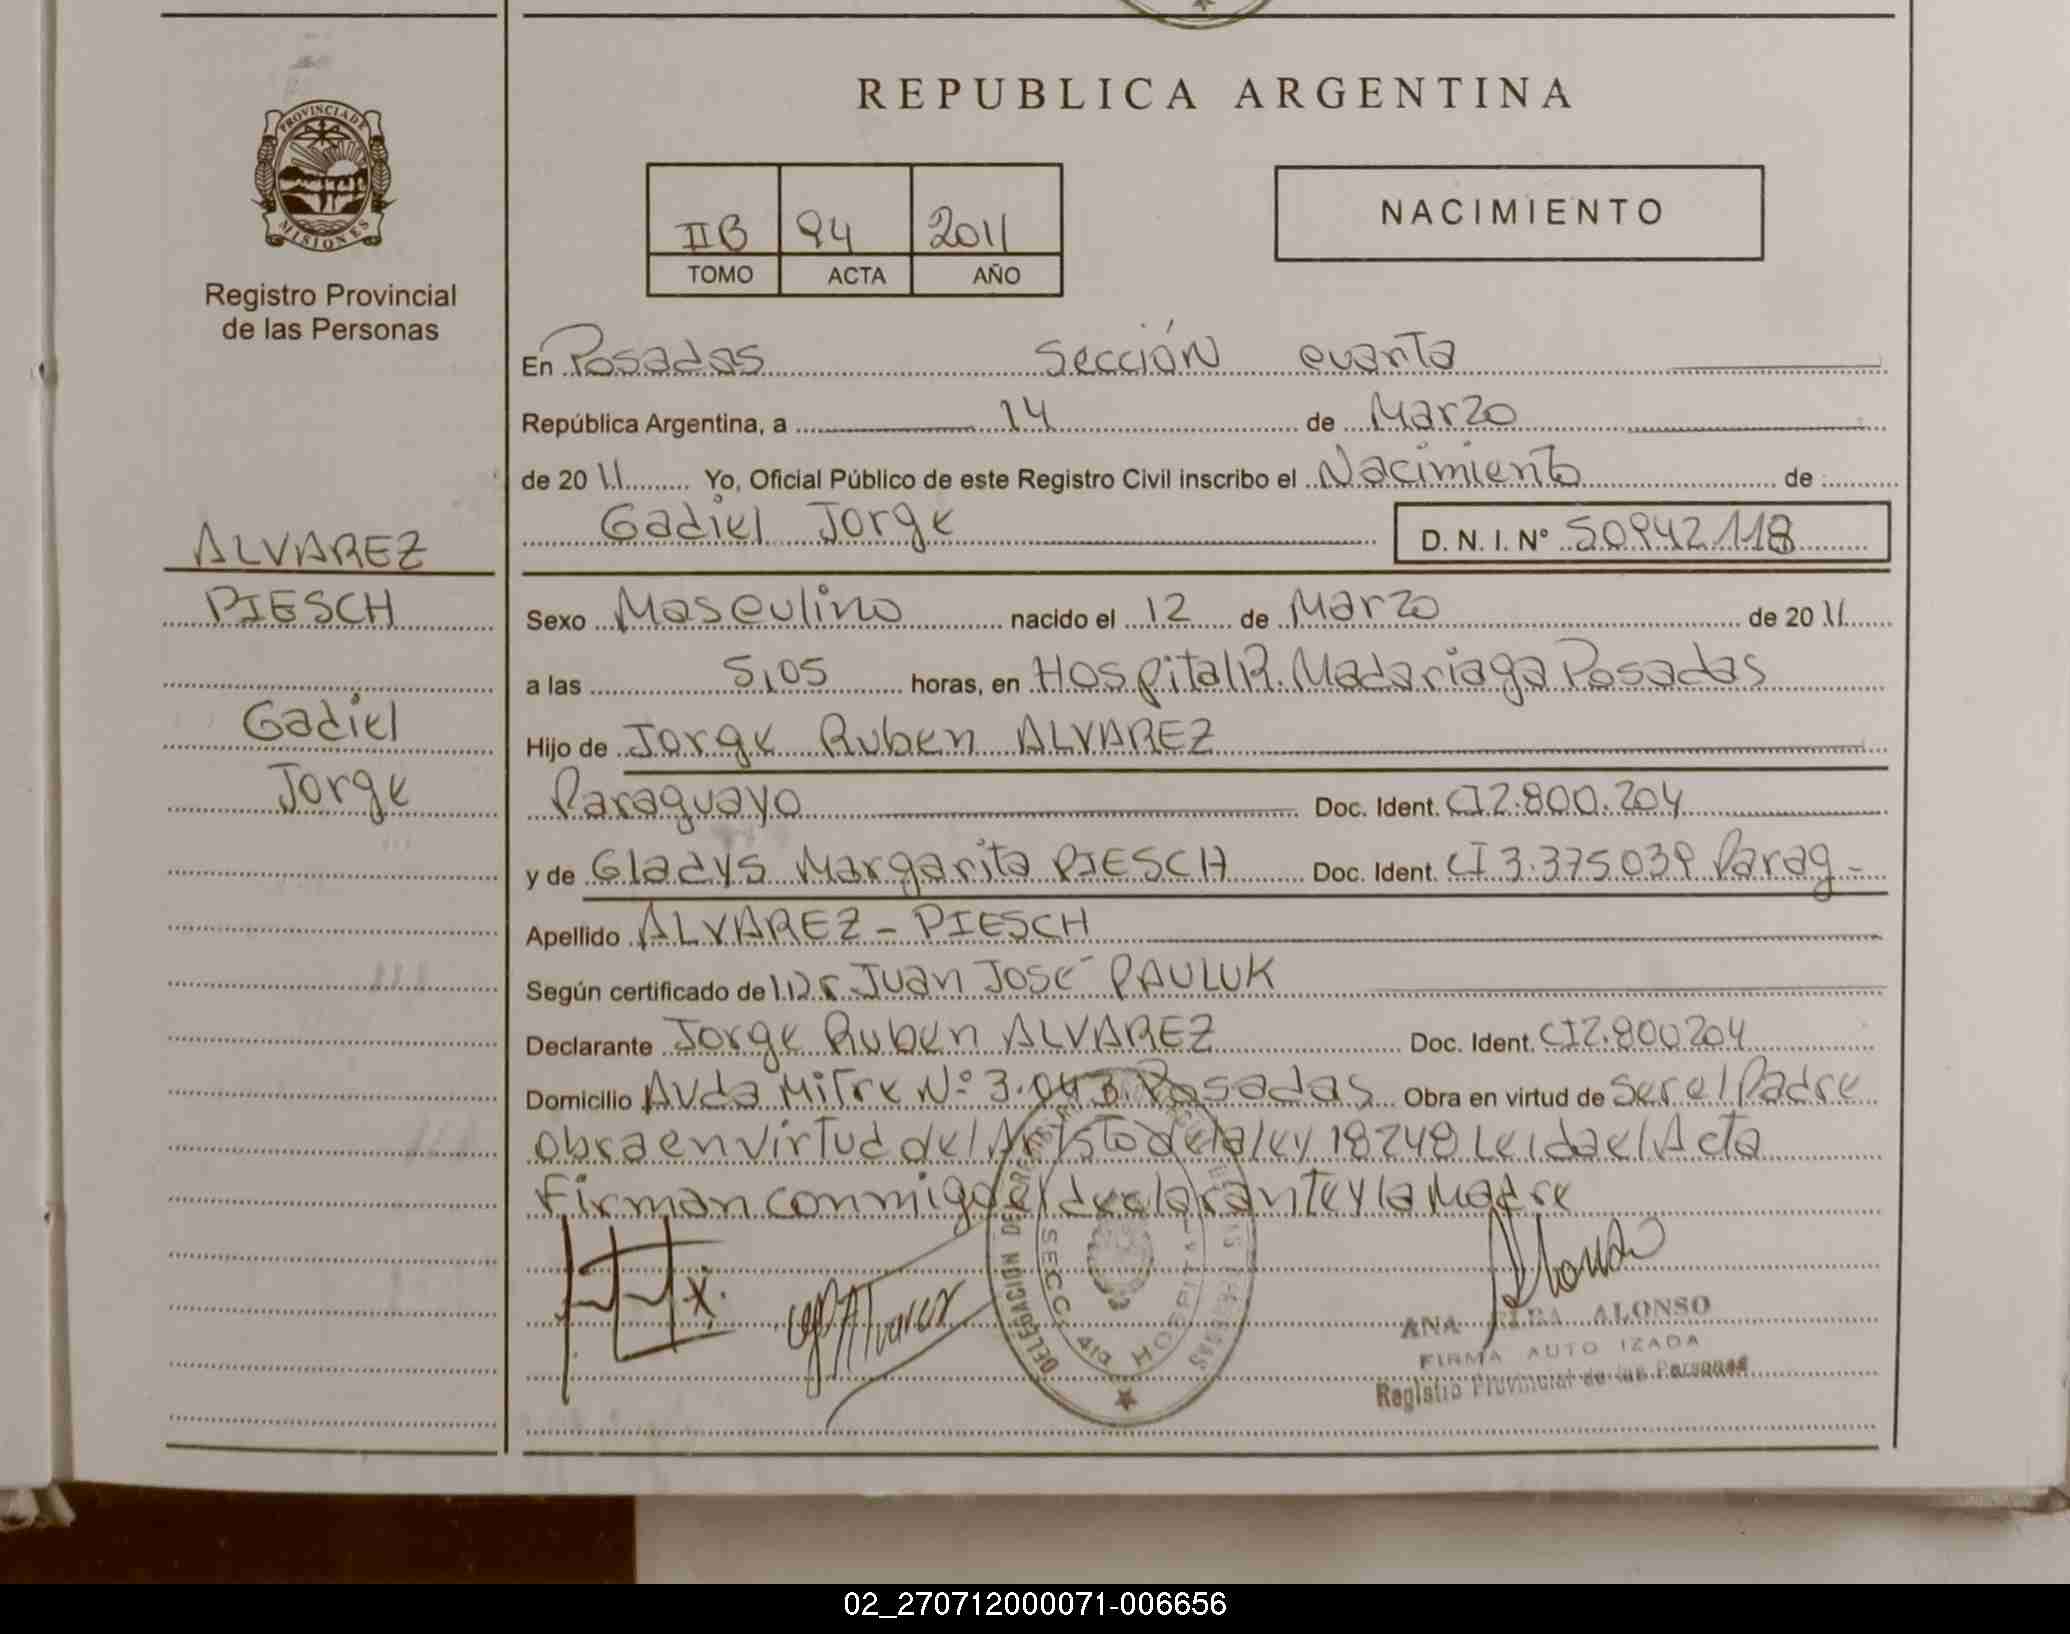 REPUBLICA ARGENTINA
PROVINCIA DE
MISIONES
Registro Provincial
de las Personas
IIB 94 2011
TOMO ACTA AÑO
NACIMIENTO
En Posadas Sección cuarta
República Argentina, a 14 de Marzo
de 2011 Yo, Oficial Público de este Registro Civil inscribo el Nacimiento de
Gadiel Jorge D. N. I. Nº 50942118
ALVAREZ
PIESCH
Gadiel
Jorge
Sexo Masculino nacido el 12 de Marzo de 2011
a las 5,05 horas, en Hospital R. Madariaga Posadas
Hijo de Jorge Ruben ALVAREZ
Paraguayo Doc. Ident. CI 2.800.204
y de Gladys Margarita PIESCH Doc. Ident. CI 3.375.039 Parag-
Apellido ALVAREZ - PIESCH
Según certificado de Juan José PAULUK
Declarante Jorge Ruben ALVAREZ Doc. Ident. CI 2.800204
Domicilio Avda Mitre Nº 3.043 Posadas Obra en virtud de ser el Padre
obra en virtud del Art 5to de la ley 18248 Leida el Acta
Firman conmigo el declarante y la Madre
DELEGACION DE
SECC. 4ta HOSPITAL
Alvarez
Alonso
ANA ELBA ALONSO
FIRMA AUTO IZADA
Registro Provincial de las Personas
02_270712000071-006656